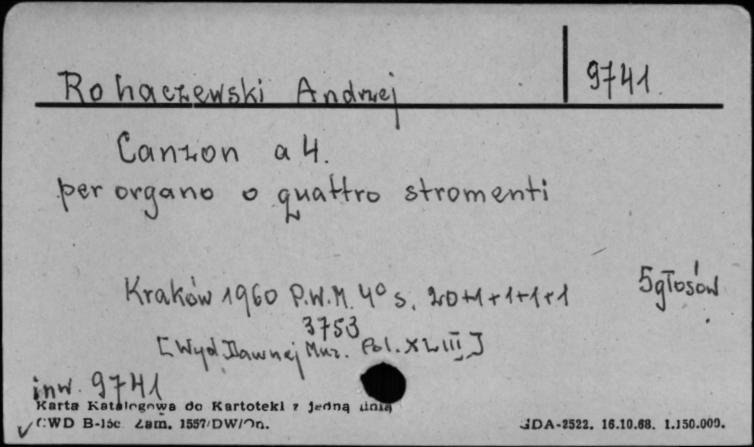 Rohaczewski Andrzej 9741
Canzon a 4.
per organo o quattro stromenti
Kraków 1960 P.W.M. 4° s. 20+1+1+1+1 5 głosów
3753
[Wyd. Dawnej Muz. Pol. XLIII]
inw. 9741
Karta Katalogowa do Kartoteki z jedną linią
CWD B-15c Zam. 1557/DW/Dn. GDA-2522. 16.10.68. 1.150.000.